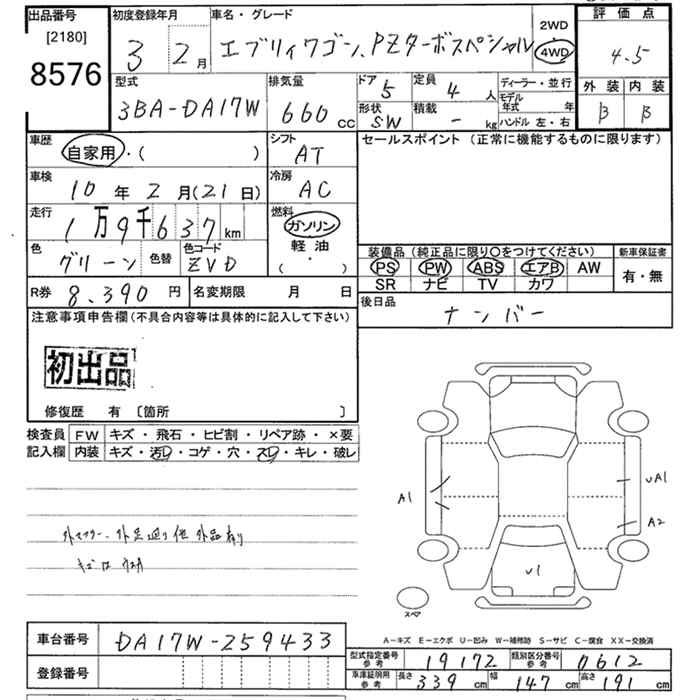 出品番号 初度登録年月 車名・グレード 2WD 評価点
[2180] 3 2月 エブリィワゴン、PZターボスペシャル 4WD 4.5
8576
型式 排気量 ドア 定員 ディーラー・並行 外装 内装
3BA-DA17W 660cc 5 4人 モデル年式 年 B B
形状 積載 ハンドル 左・右
SW - kg
車歴 シフト セールスポイント(正常に機能するものに限ります)
自家用・( ) AT
車検 冷房
10年2月(21日) AC
走行 燃料
1万9千637km ガソリン
色 色替 色コード 軽油
グリーン ZVD ( ・ )
装備品(純正品に限り〇をつけてください) 新車保証書
PS PW ABS エアB AW 有・無
SR ナビ TV カワ
R券 8,390円 名変期限 月 日 後日品
ナンバー
注意事項申告欄(不具合内容等は具体的に記入して下さい)
初出品
修復歴 有 〔箇所 〕
検査員 FW キズ・飛石・ヒビ割・リペア跡・×要
記入欄 内装 キズ・汚レ・コゲ・穴・スレ・キレ・破レ
A1 UA1
A2
U1
外マフラー、外足廻り他 外品有り
スペア
車台番号 DA17W-259433
登録番号
A-キズ E-エクボ U-凹み W-補修跡 S-サビ C-腐食 XX-交換済
型式指定番号 参考 19172 類別区分番号 参考 0612
車庫証明用 参考 長さ 339cm 幅 147cm 高さ 191cm